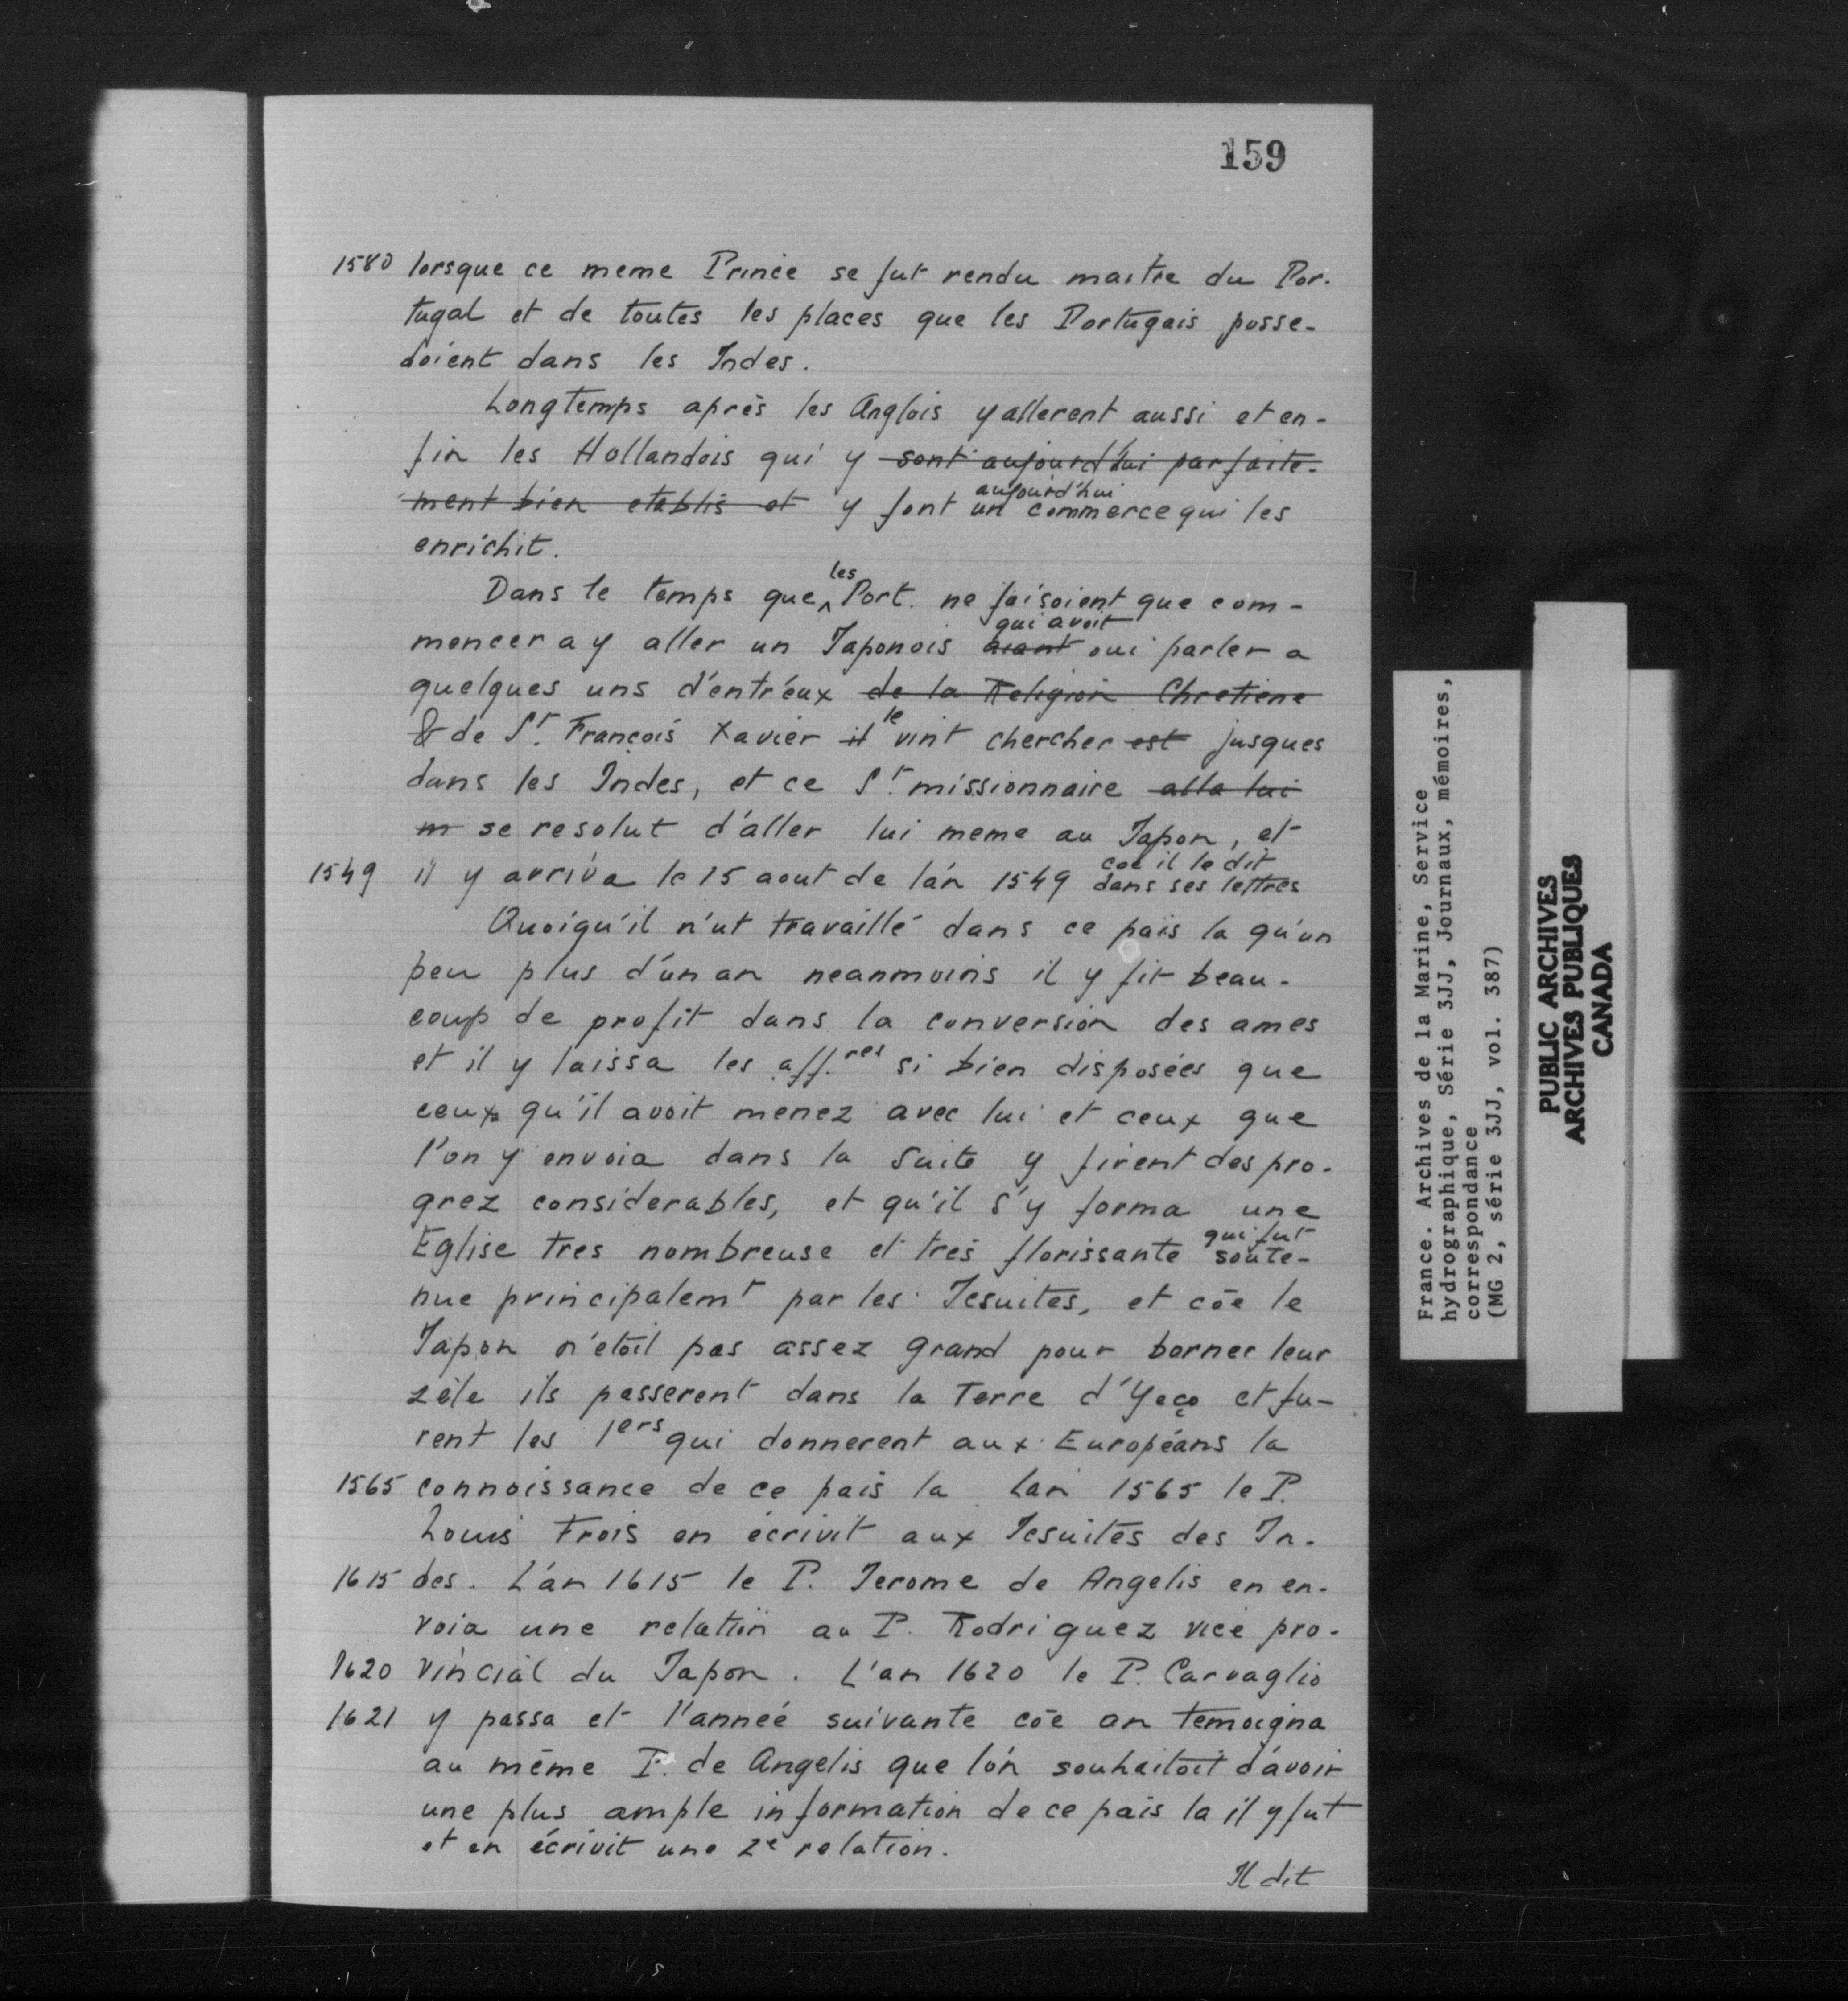 159
1580 lorsque ce meme Prince se fut rendu maitre du Por-
tugal et de toutes les places que les Portugais posse-
doient dans les Indes.
Longtemps après les Anglois y allerent aussi et en-
fin les Hollandois qui y sont aujourd'hui parfaite-
ment bien etablis et y font aujourd'hui un commerce qui les
enrichit.
Dans le temps que les Port. ne faisoient que com-
mencer a y aller un Japonois aiant qui avoit oui parler a
quelques uns d'entr'eux de la Religion Chretiene
& de St. François Xavier il le vint chercher est jusques
dans les Indes, et ce St. missionnaire alla lui
m se resolut d'aller lui meme au Japon, et
1549 il y arriva le 15 aout de l'an 1549 coe il le dit dans ses lettres
Quoiqu'il n'ut travaillé dans ce païs la qu'un
peu plus d'un an neanmoins il y fit beau-
coup de profit dans la conversion des ames
et il y laissa les aff.res si bien disposées que
ceux qu'il avoit menez avec lui et ceux que
l'on y envoia dans la suite y firent des pro-
grez considerables, et qu'il s'y forma une
Eglise tres nombreuse et tres florissante qui fut soute-
nue principalemt par les Jesuites, et cõe le
Japon n'etoit pas assez grand pour borner leur
zèle ils passerent dans la Terre d'Yeço et fu-
rent les 1ers qui donnerent aux Européans la
1565 connoissance de ce païs la Lan 1565 le P.
Louis Frois en écrivit aux Jesuites des In-
1615 des. L'an 1615 le P. Jerome de Angelis en en-
voia une relation au P. Rodriguez vice pro-
1620 vincial du Japon. L'an 1620 le P. Carvaglio
1621 y passa et l'année suivante cõe on temoigna
au même P. de Angelis que l'on souhaitoit d'avoir
une plus ample information de ce païs la il y fut
et en écrivit une 2e relation.
Il dit
France. Archives de la Marine, Service
hydrographique, Série 3JJ, Journaux, mémoires,
correspondance
(MG 2, série 3JJ, vol. 387)
PUBLIC ARCHIVES
ARCHIVES PUBLIQUES
CANADA